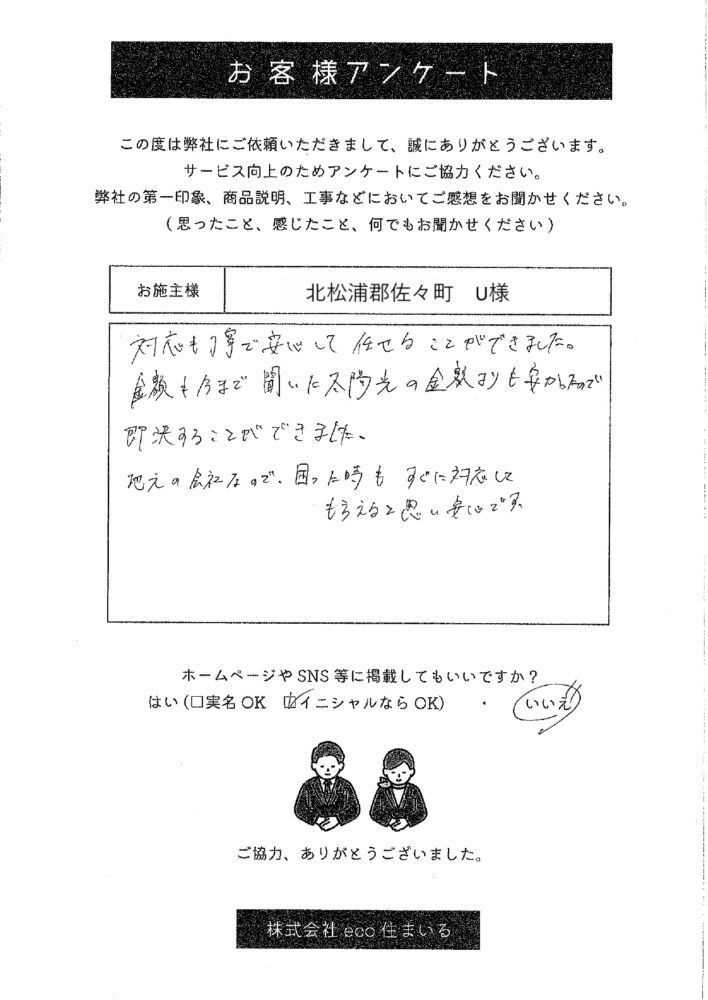 お客様アンケート
この度は弊社にご依頼いただきまして、誠にありがとうございます。
サービス向上のためアンケートにご協力ください。
弊社の第一印象、商品説明、工事などにおいてご感想をお聞かせください。
(思ったこと、感じたこと、何でもお聞かせください)
お施主様 北松浦郡佐々町 U様
対応も丁寧で安心して 任せる ことができました。
金額も今まで 聞いた太陽光の金額よりも安かったので
即決することができました。
地元の会社なので、困った時も すぐに対応して
もらえると思い安心です。
ホームページや SNS 等に掲載してもいいですか?
はい(□実名 OK ☑イニシャルなら OK) ・ いいえ
ご協力、ありがとうございました。
株式会社 eco 住まいる